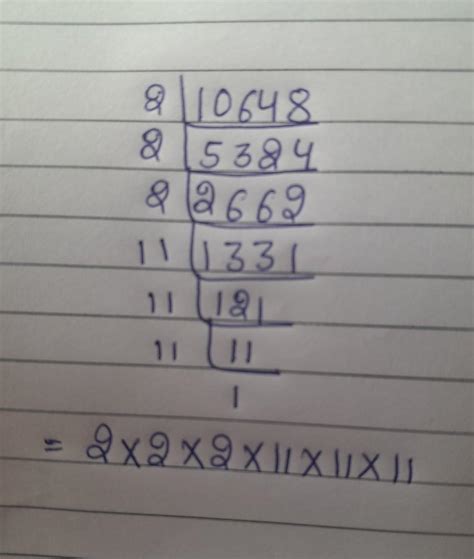 2 | 10648
2 | 5324
2 | 2662
11 | 1331
11 | 121
11 | 11
1
= 2×2×2×11×11×11